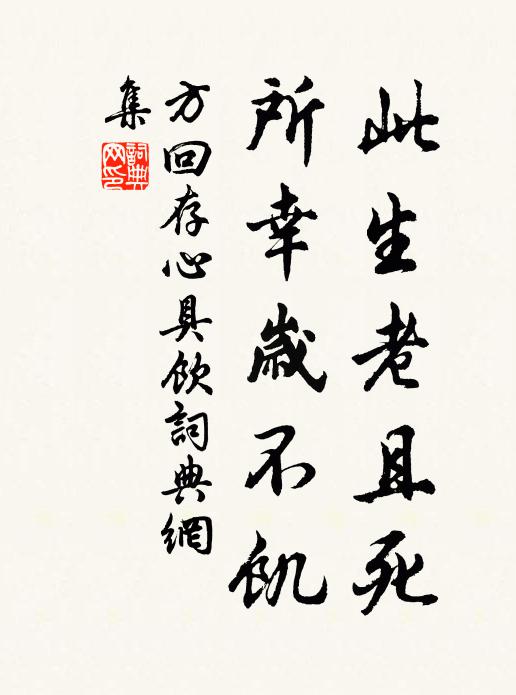 此生老且死
所幸歲不飢
方回存心具飲詞典網
集
詞典
网印